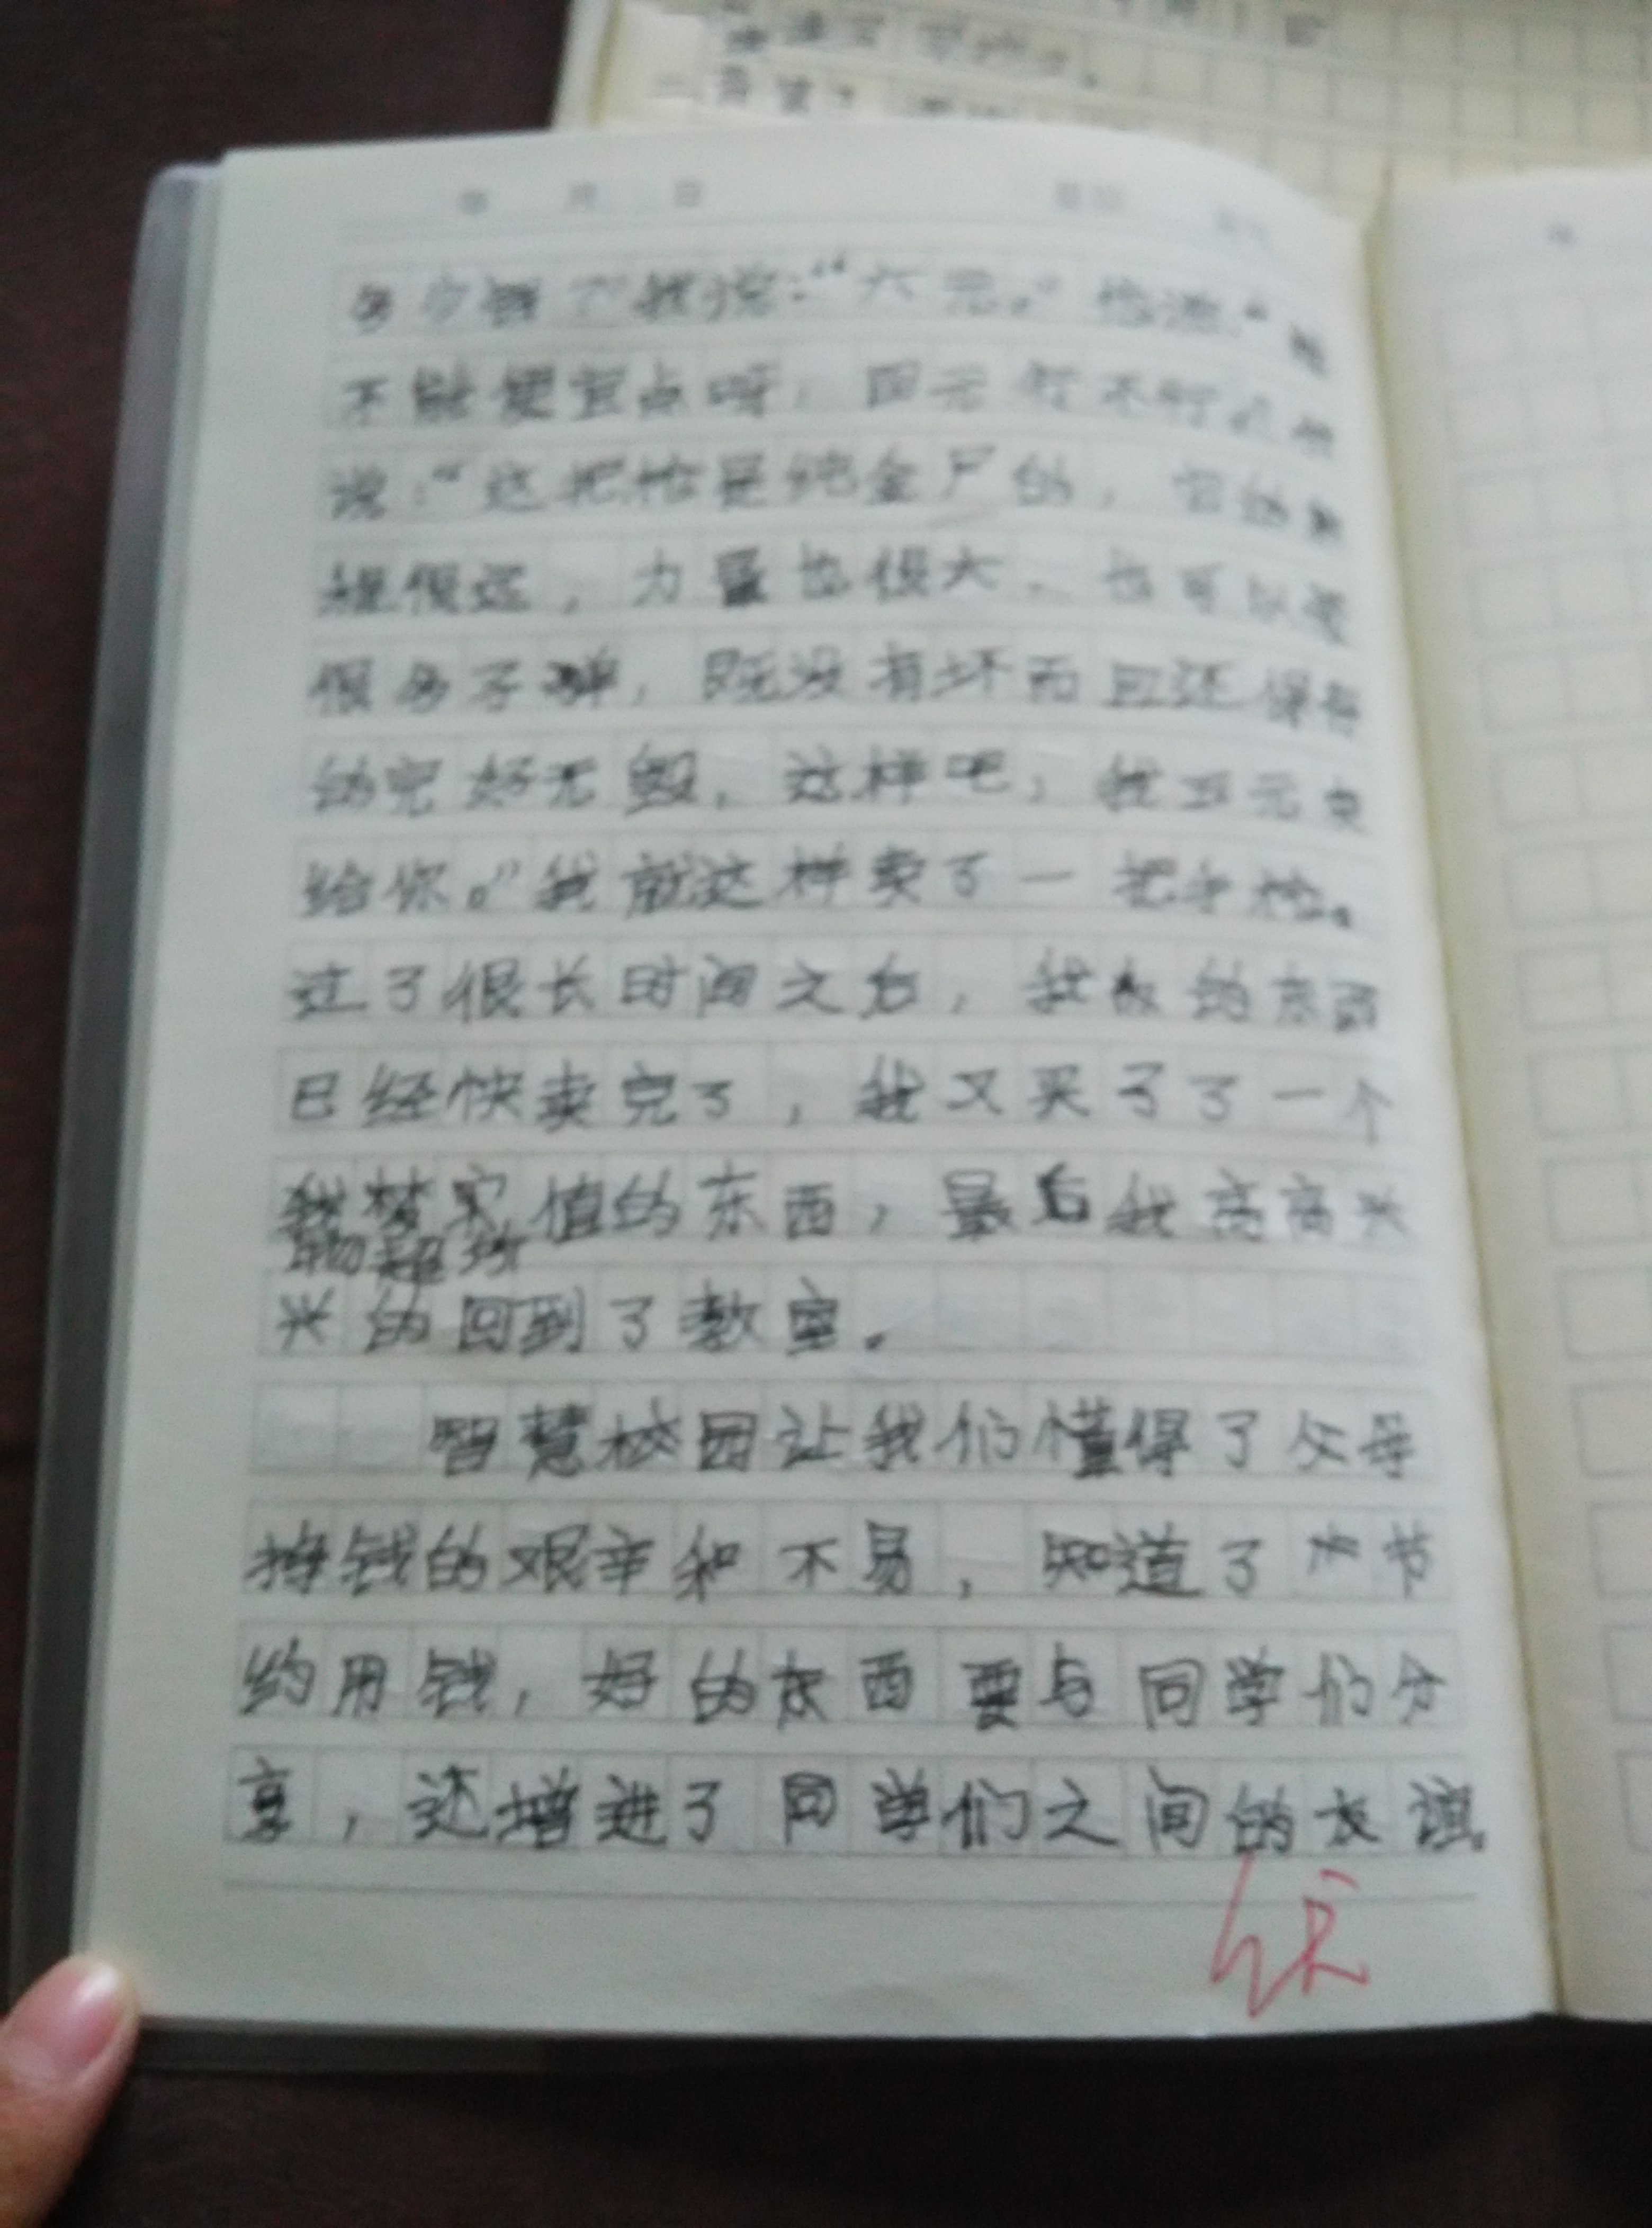 年 月 日 星期
多少钱？”我说：“六元。”他说：“能
不能便宜点呀，四元行不行。”我
说：“这把枪是纯金尸的，它的射
很远，力量也很大，也可以装
很多子弹，既没有坏而且还保存
的完好无毁，这样吧，我五元卖
给你。”我就这样卖了一把手枪。
过了很长时间之后，我的东西
已经快卖完了，我又买了了一个
我梦 值的东西，最后我高高兴
物超
兴的回到了教室。
智慧校园让我们懂得了父母
挣钱的艰辛和不易，知道了 节
约用钱，好的东西要与同学们分
享，还增进了同学们之间的友谊
优